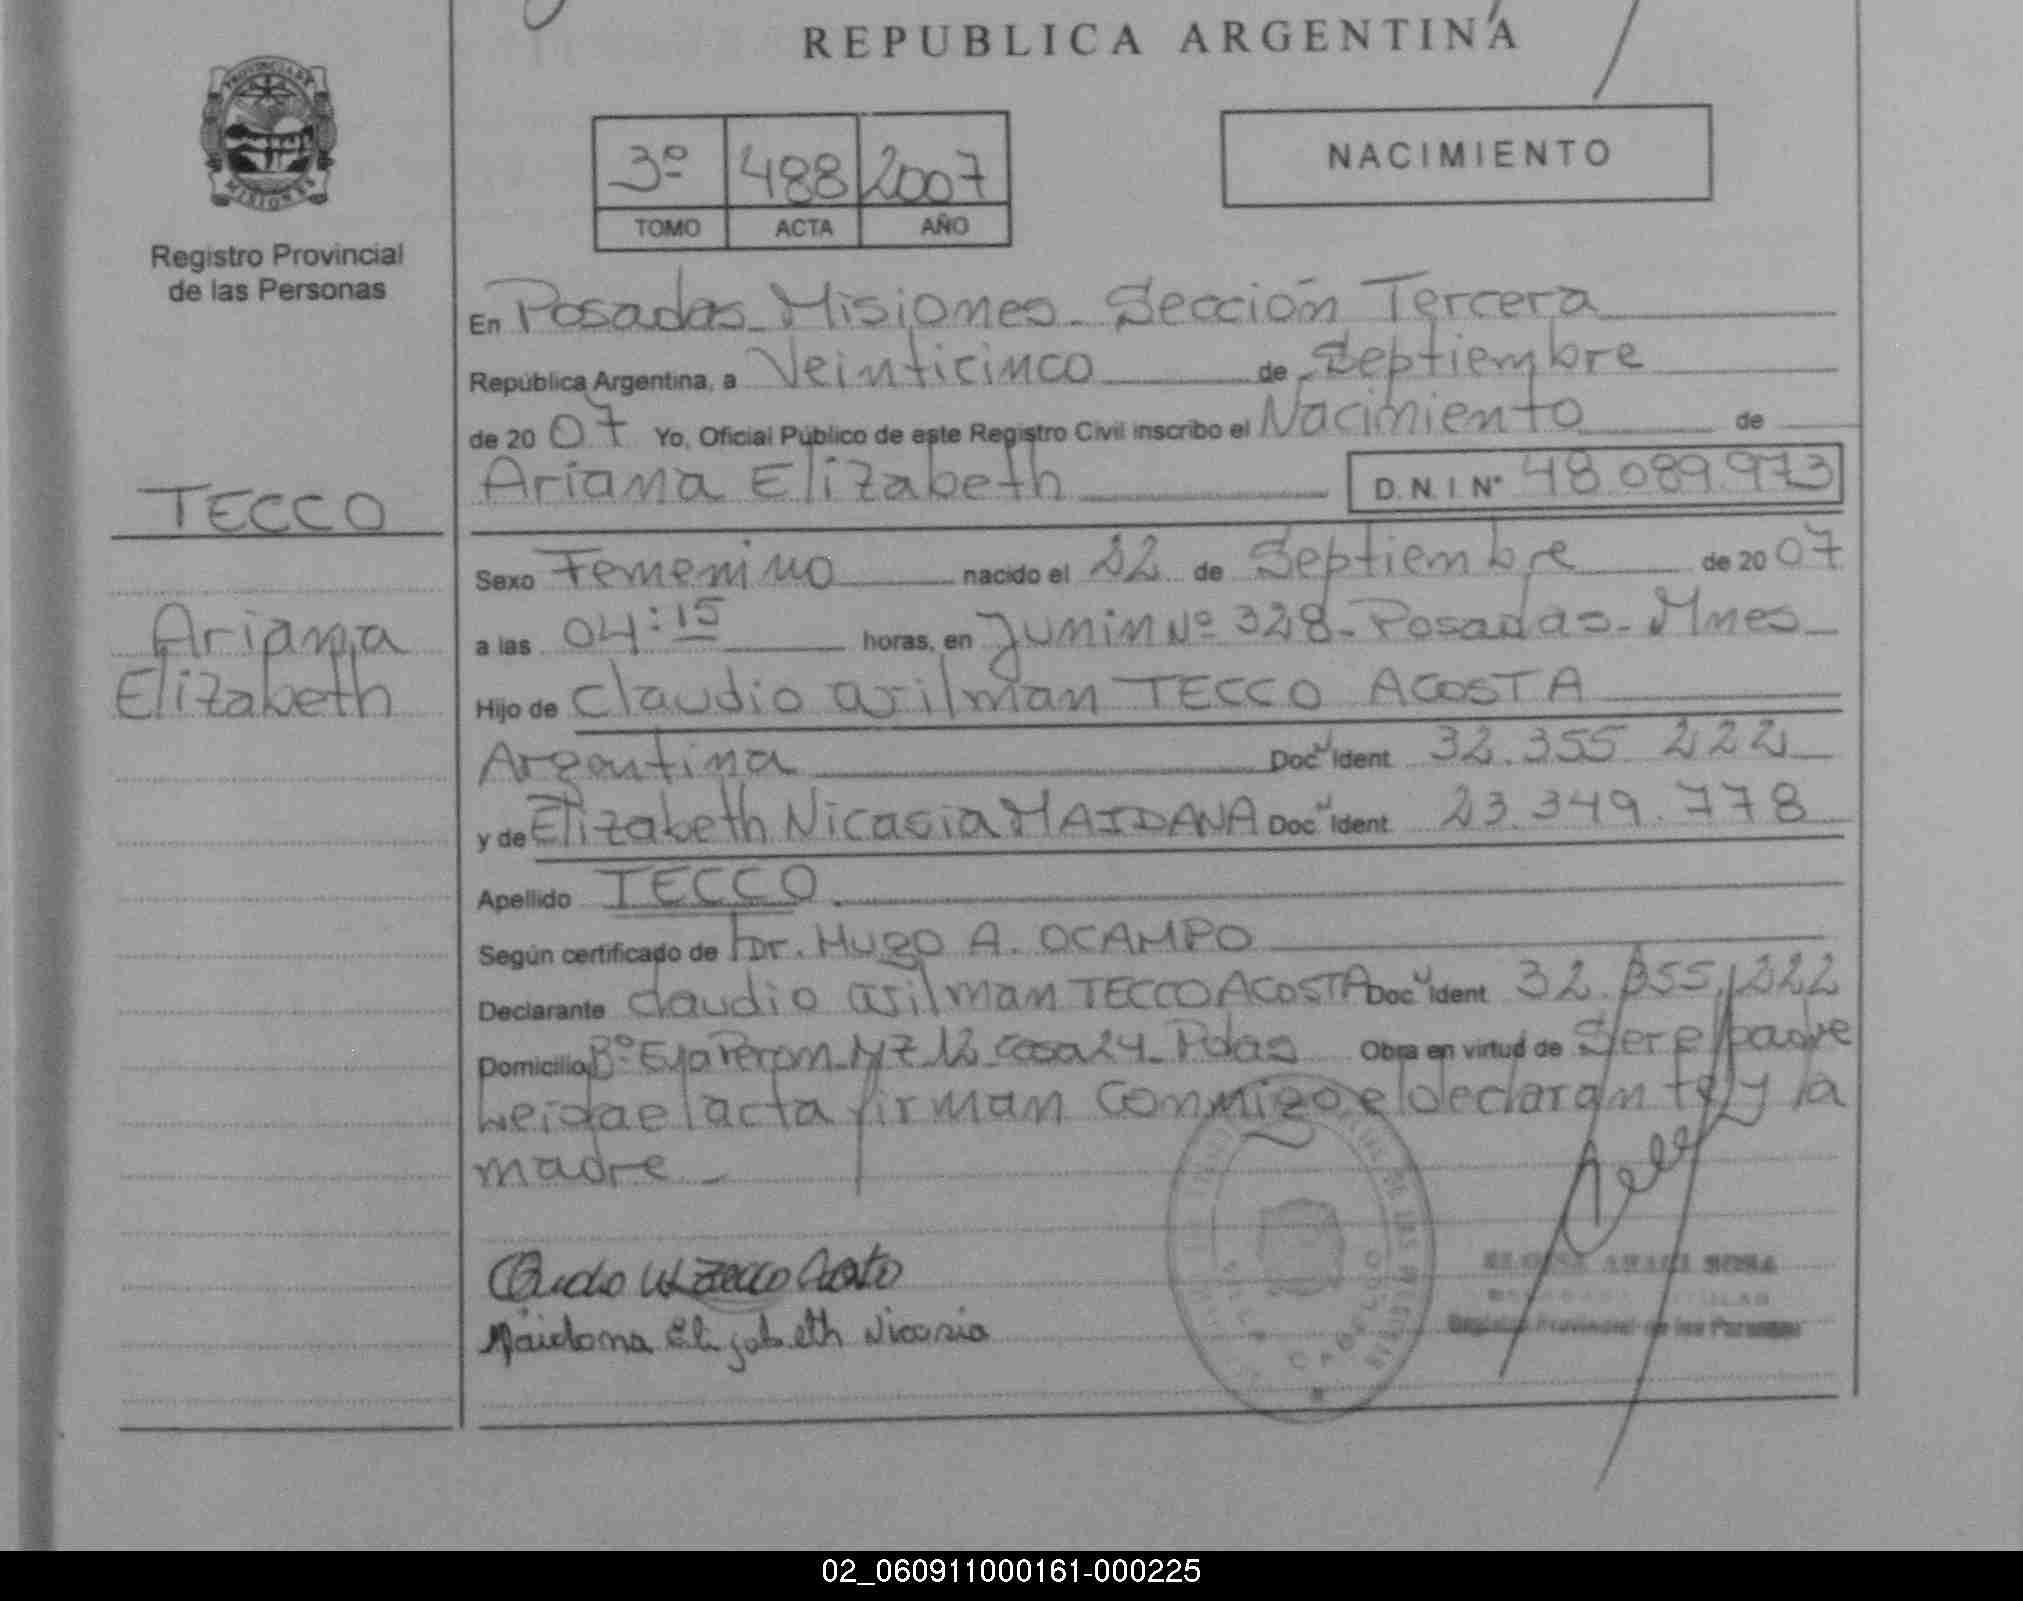 REPUBLICA ARGENTINA
PROVINCIA DE
MISIONES
Registro Provincial
de las Personas
3º 488 2007
TOMO ACTA AÑO
NACIMIENTO
En Posadas - Misiones - Sección Tercera
República Argentina, a Veinticinco de Septiembre
de 20 07 Yo, Oficial Público de este Registro Civil inscribo el Nacimiento de
Ariana Elizabeth D.N.I Nº 48.089.973
TECCO
Ariana
Elizabeth
Sexo Femenino nacido el 22 de Septiembre de 20 07
a las 04:15 horas, en Junin Nº 328 - Posadas - Mnes -
Hijo de Claudio Wilman TECCO ACOSTA
Argentina Doc Ident 32.355.222
y de Elizabeth Nicasia MAIDANA Doc Ident 23.349.778
Apellido TECCO
Según certificado de Dr. Hugo A. OCAMPO
Declarante Claudio Wilman TECCO ACOSTA Doc Ident 32.355.222
Domicilio Bº Eva Peron Mz 12 casa 24 - Pdas Obra en virtud de Ser el padre
Leida el acta firman conmigo el declarante y la
madre -
Maidana Elizabeth Nicasia
Registro Provincial de las Personas
02_060911000161-000225